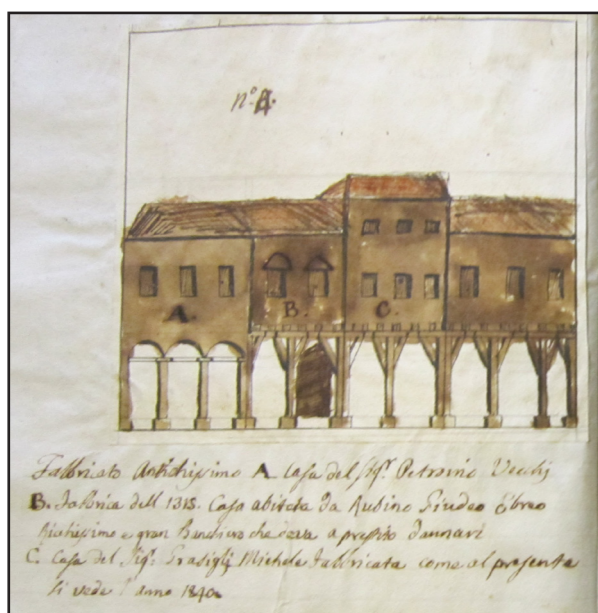 nº 4.
A.
B.
C.
Fabbricato Antichissimo A Casa del Sigr. Petronio Vecchj
B. Fabbrica dell 1315. Casa abitata da Rubino Giudeo Ebreo
Richissimo e gran Banchiero che dava a prestito dannari
C. Casa del Sigr. Grasigli Michele Fabbricata come al presente
si vede l'anno 1840